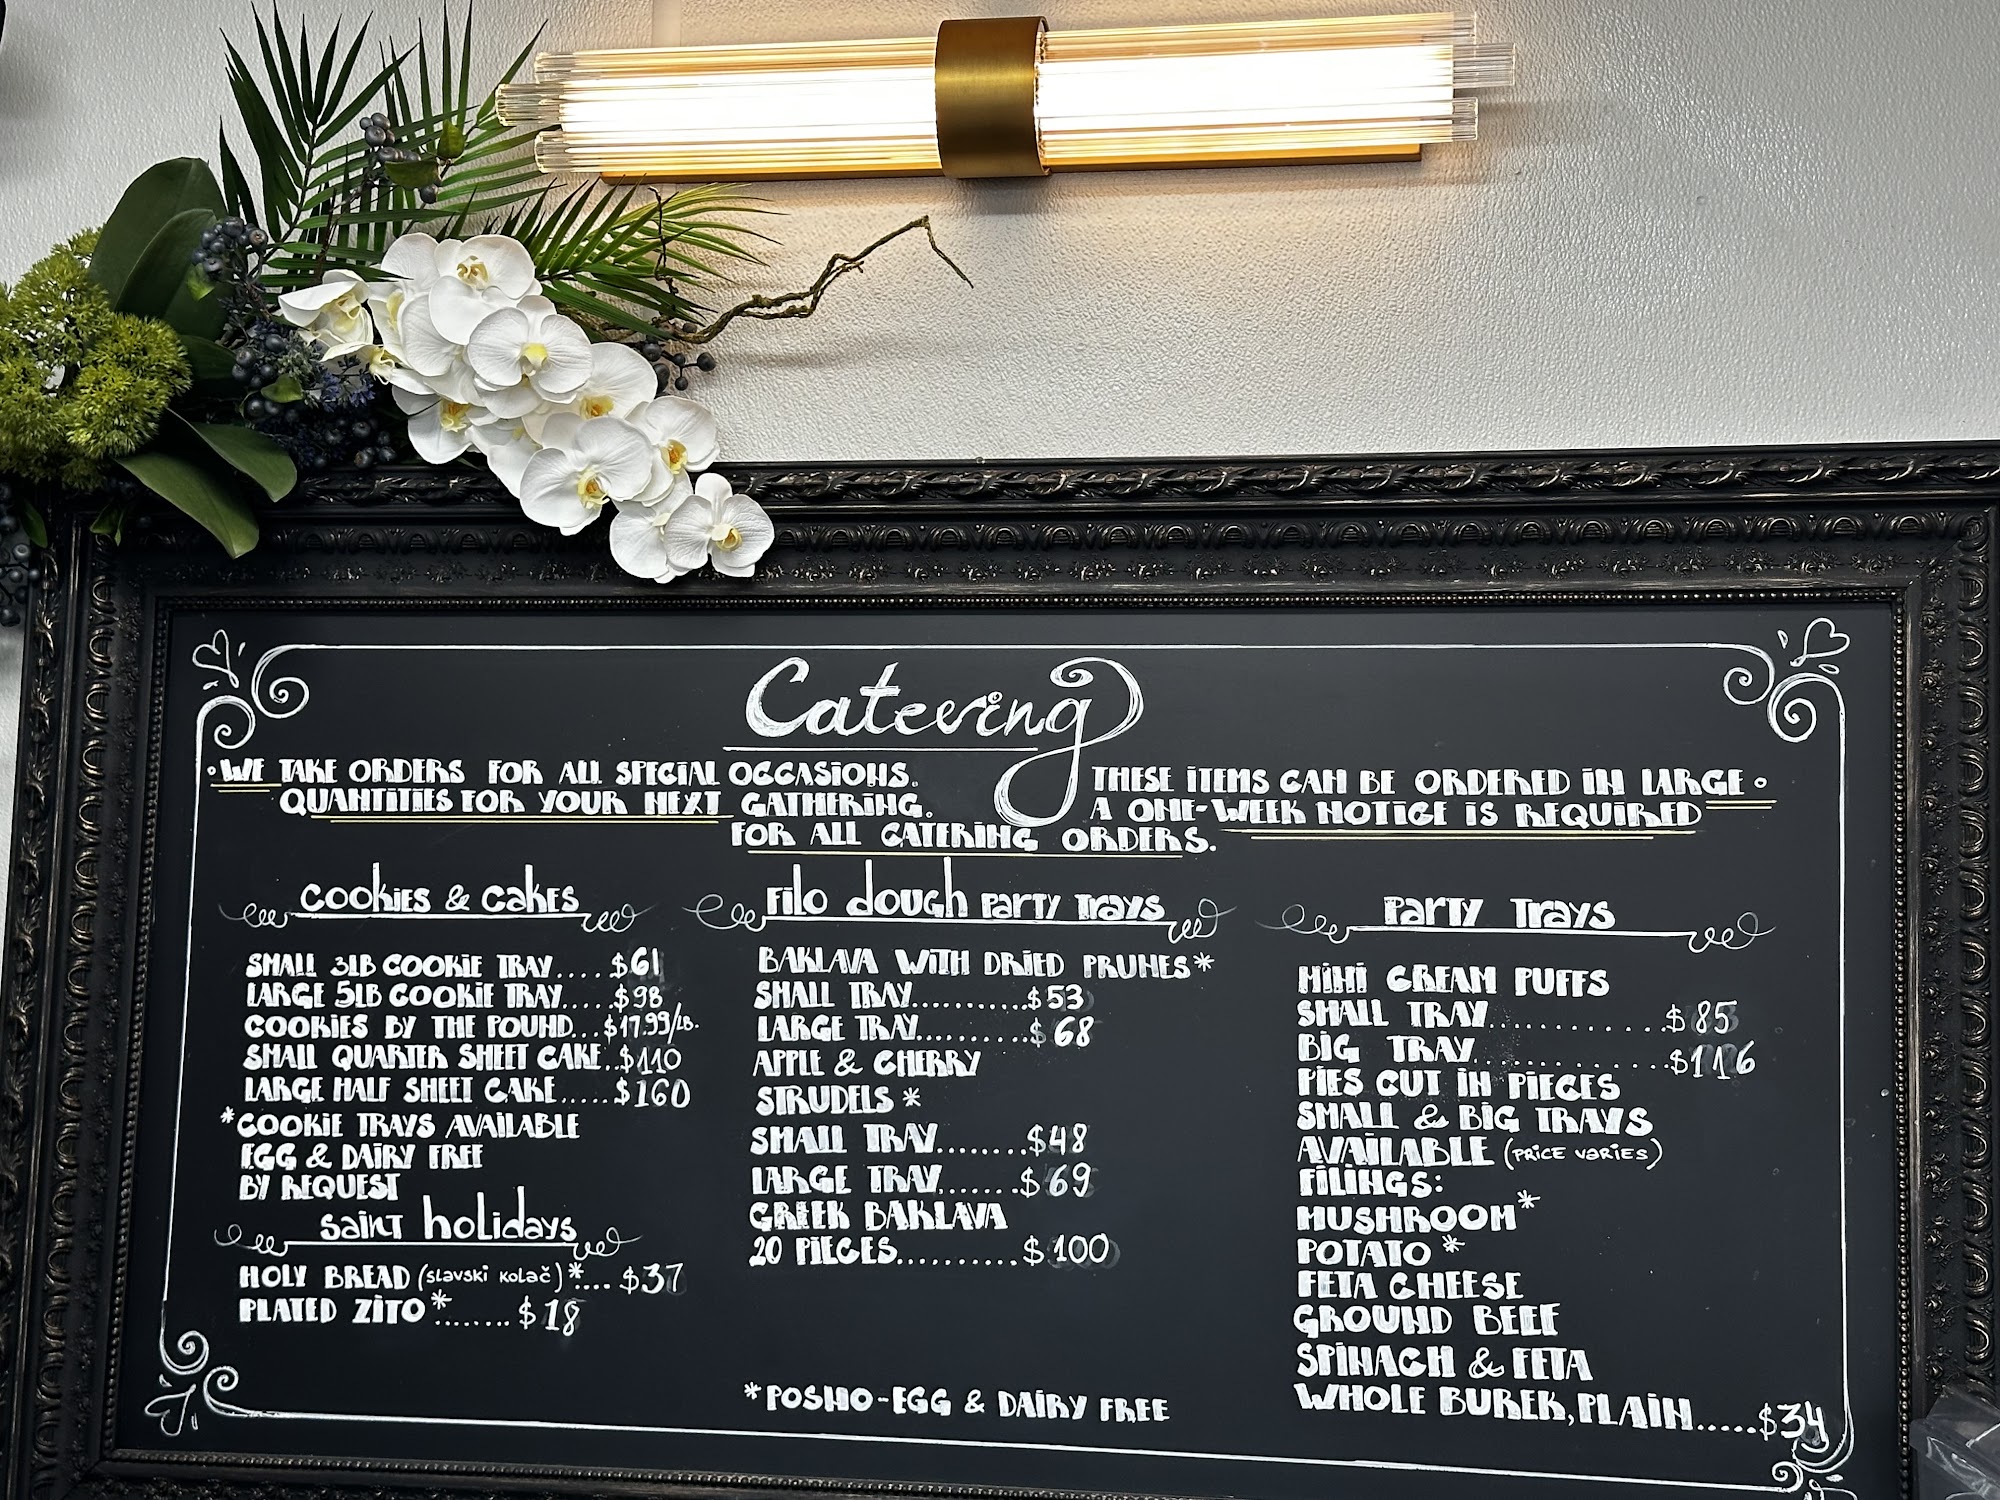 Catering
WE TAKE ORDERS FOR ALL SPECIAL OCCASIONS. THESE ITEMS CAN BE ORDERED IN LARGE
QUANTITIES FOR YOUR NEXT GATHERING. A ONE-WEEK NOTICE IS REQUIRED
FOR ALL CATERING ORDERS.
COOKIES & CAKES
SMALL 3LB COOKIE TRAY.... $61
LARGE 5LB COOKIE TRAY.....$98
COOKIES BY THE POUND...$17.99/LB.
SMALL QUARTER SHEET CAKE..$110
LARGE HALF SHEET CAKE.....$160
*COOKIE TRAYS AVAILABLE
EGG & DAIRY FREE
BY REQUEST
SAINT HOLIDAYS
HOLY BREAD (SLAVSKI KOLAČ)*.... $37
PLATED ZITO*........ $18
FILO DOUGH PARTY TRAYS
BAKLAVA WITH DRIED PRUNES*
SMALL TRAY...........$53
LARGE TRAY...........$68
APPLE & CHERRY
STRUDELS *
SMALL TRAY........$48
LARGE TRAY.......$69
GREEK BAKLAVA
20 PIECES..........$100
*POSNO-EGG & DAIRY FREE
PARTY TRAYS
MINI CREAM PUFFS
SMALL TRAY............$85
BIG TRAY.............$116
PIES CUT IN PIECES
SMALL & BIG TRAYS
AVAILABLE (PRICE VARIES)
FILINGS:
MUSHROOM*
POTATO *
FETA CHEESE
GROUND BEEF
SPINACH & FETA
WHOLE BUREK, PLAIN.....$34